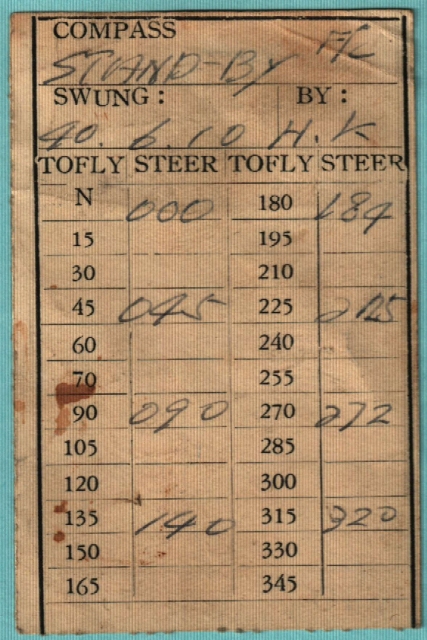 COMPASS
STAND-BY A/C
SWUNG: BY:
40. 6. 10 H. K
TOFLY STEER TOFLY STEER
N 000 180 184
15 195
30 210
45 045 225 225
60 240
70 255
90 090 270 272
105 285
120 300
135 140 315 320
150 330
165 345